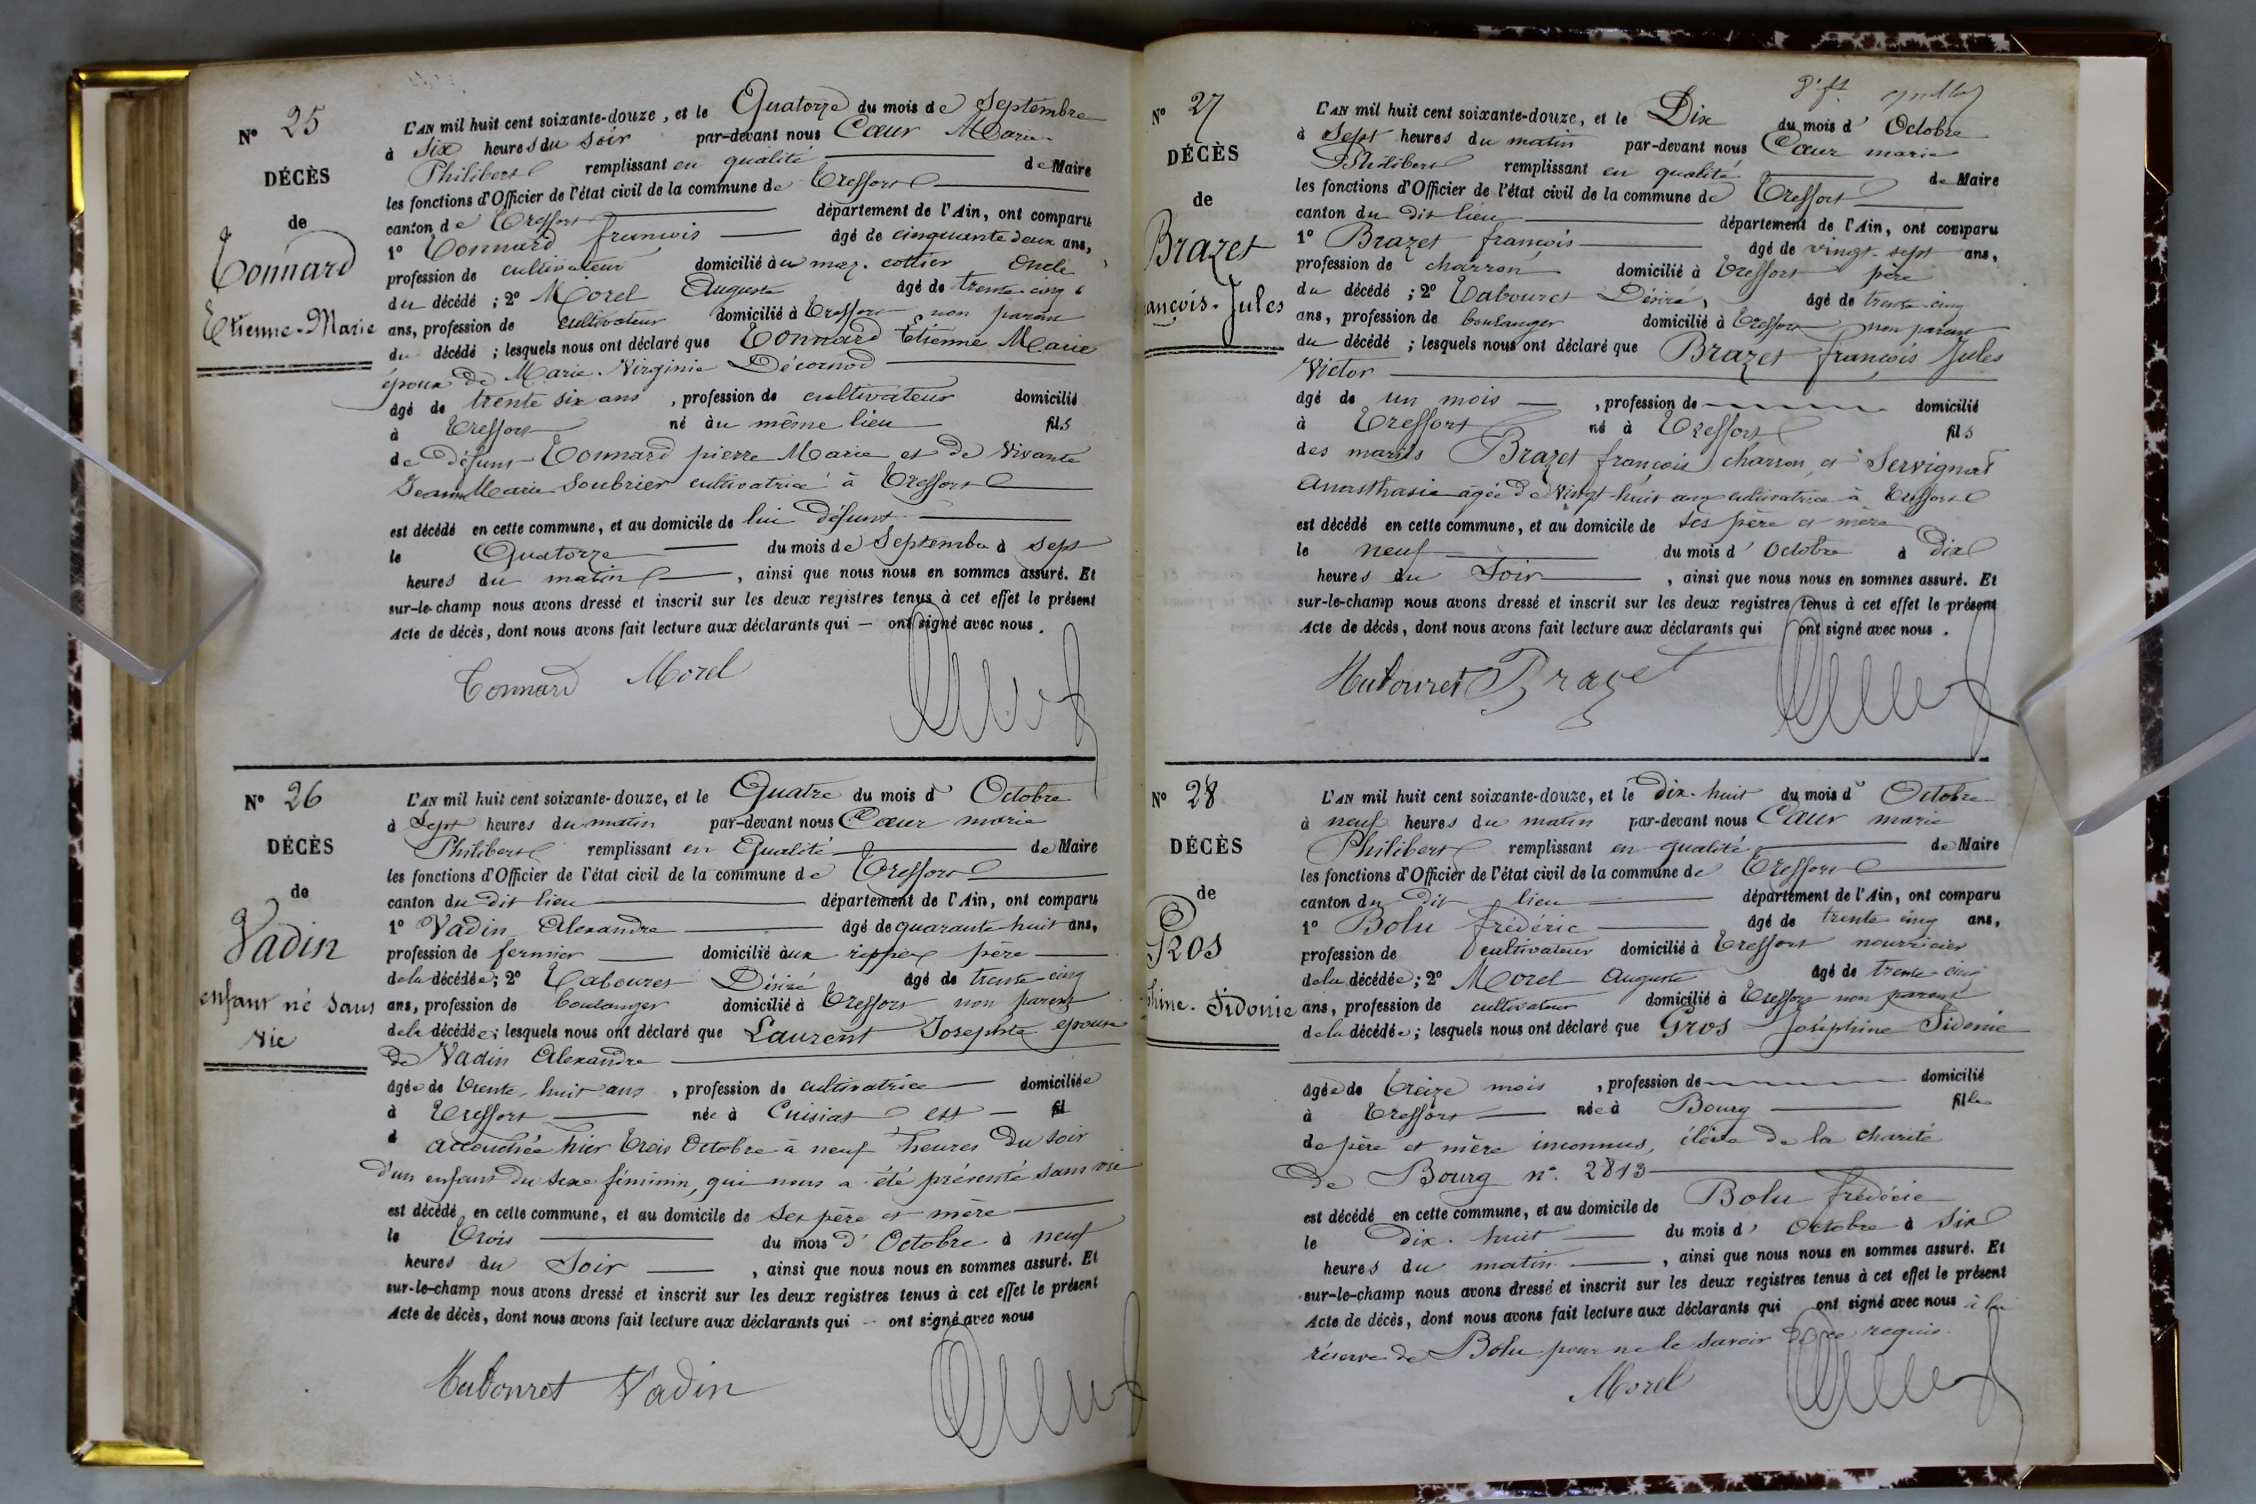 N° 25
DÉCÈS
de
Tonnard
Etienne-Marie
L'AN mil huit cent soixante-douze, et le Quatorze du mois de Septembre
à six heures du soir par-devant nous Cœur Marie
Philibert remplissant en qualité de Maire
les fonctions d'Officier de l'état civil de la commune de Treffort
canton de Treffort département de l'Ain, ont comparu
1° Tonnard françois âgé de cinquante deux ans,
profession de cultivateur domicilié au maz. cottier oncle
du décédé ; 2° Morel Auguste âgé de trente cinq
ans, profession de cultivateur domicilié à Treffort non parent
du décédé ; lesquels nous ont déclaré que Tonnard Etienne Marie
époux de Marie Virginie Décornod
âgé de trente six ans , profession de cultivateur domicilié
à Treffort né au même lieu fils
de défunt Tonnard pierre Marie et de vivante
Jeanne Marie Soubrier cultivatrice à Treffort
est décédé en cette commune, et au domicile de lui défunt
le Quatorze du mois de Septembre à sept
heures du matin , ainsi que nous nous en sommes assuré. Et
sur-le-champ nous avons dressé et inscrit sur les deux registres tenus à cet effet le présent
Acte de décès, dont nous avons fait lecture aux déclarants qui — ont signé avec nous.
Tonnard Morel
N° 26
DÉCÈS
de
Vadin
enfant né sans
vie
L'AN mil huit cent soixante-douze, et le Quatre du mois d'Octobre
à Sept heures du matin par-devant nous Cœur marie
Philibert remplissant en Qualité de Maire
les fonctions d'Officier de l'état civil de la commune de Treffort
canton du dit lieu département de l'Ain, ont comparu
1° Vadin Alexandre âgé de quarante huit ans,
profession de fermier domicilié aux rippes père
de la décédée ; 2° Tabouret Désiré âgé de trente cinq
ans, profession de boulanger domicilié à Treffort non parent
de la décédée ; lesquels nous ont déclaré que Laurent Josephte épouse
de Vadin Alexandre
âgée de trente-huit ans , profession de cultivatrice domiciliée
à Treffort née à Cuisiat est — fil
d accouchée hier trois Octobre à neuf heures du soir
d'un enfant du sexe féminin, qui nous a été présenté sans vie
est décédé en cette commune, et au domicile de ses père et mère
le trois du mois d'Octobre à neuf
heures du soir , ainsi que nous nous en sommes assuré. Et
sur-le-champ nous avons dressé et inscrit sur les deux registres tenus à cet effet le présent
Acte de décès, dont nous avons fait lecture aux déclarants qui — ont signé avec nous
Tabouret Vadin
N° 27
DÉCÈS
de
Brazet
ançois-Jules
L'AN mil huit cent soixante-douze, et le Dix du mois d'Octobre
à Sept heures du matin par-devant nous Cœur marie
Philibert remplissant en qualité de Maire
les fonctions d'Officier de l'état civil de la commune de Treffort
canton du dit lieu département de l'Ain, ont comparu
1° Brazet françois âgé de vingt-sept ans,
profession de charron domicilié à Treffort père
du décédé ; 2° Tabouret Désiré, âgé de trente-cinq
ans, profession de boulanger domicilié à Treffort non parent
du décédé ; lesquels nous ont déclaré que Brazet françois Jules
Victor
âgé de un mois , profession de domicilié
à Treffort né à Treffort fils
des mariés Brazet françois charron, et Servignat
Anasthasie âgée de vingt-huit ans cultivatrice à Treffort
est décédé en cette commune, et au domicile de ses père et mère
le neuf du mois d'Octobre à dix
heures du Soir , ainsi que nous nous en sommes assuré. Et
sur-le-champ nous avons dressé et inscrit sur les deux registres tenus à cet effet le présent
Acte de décès, dont nous avons fait lecture aux déclarants qui ont signé avec nous.
Tabouret Brazet
N° 28
DÉCÈS
de
Gros
phine-Sidonie
L'AN mil huit cent soixante-douze, et le dix-huit du mois d'Octobre
à neuf heures du matin par-devant nous Cœur marie
Philibert remplissant en qualité de Maire
les fonctions d'Officier de l'état civil de la commune de Treffort
canton du dit lieu département de l'Ain, ont comparu
1° Bolu frédéric âgé de trente cinq ans,
profession de cultivateur domicilié à Treffort nourricier
de la décédée ; 2° Morel Auguste âgé de trente cinq
ans, profession de cultivateur domicilié à Treffort non parent
de la décédée ; lesquels nous ont déclaré que Gros Joséphine Sidonie
âgée de treize mois , profession de domicilié
à Treffort née à Bourg fille
de père et mère inconnus, élève de la charité
de Bourg n°. 2813
est décédé en cette commune, et au domicile de Bolu frédéric
le dix-huit du mois d'Octobre à six
heures du matin , ainsi que nous nous en sommes assuré. Et
sur-le-champ nous avons dressé et inscrit sur les deux registres tenus à cet effet le présent
Acte de décès, dont nous avons fait lecture aux déclarants qui ont signé avec nous à la
réserve de Bolu pour ne le savoir de ce requis.
Morel